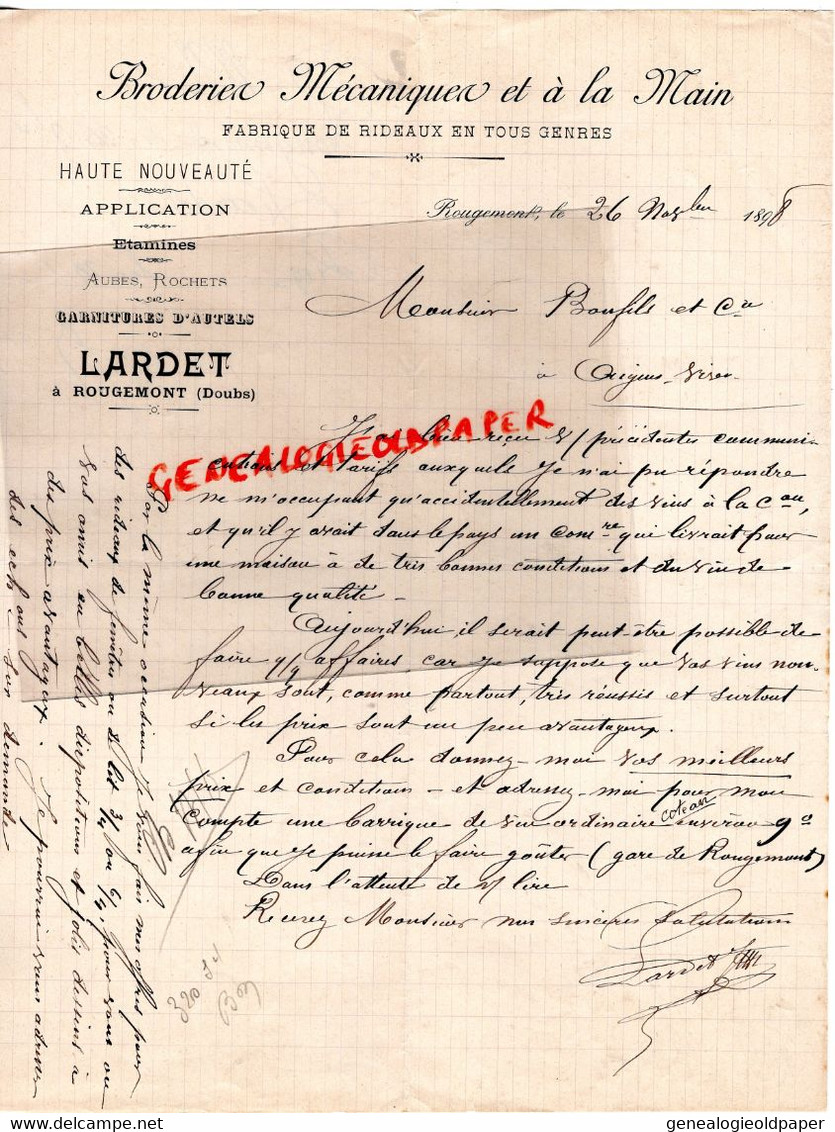 Broderies Mécaniques et à la Main
FABRIQUE DE RIDEAUX EN TOUS GENRES
HAUTE NOUVEAUTÉ
APPLICATION
Etamines
AUBES, ROCHETS
GARNITURES D'AUTELS
LARDET
à ROUGEMONT (Doubs)
Rougemont, le 26 Novbre 1898
Monsieur Bonfils et Cie
à Aigues-Vives
J'ai bien reçu v/ précédentes communi-
cations et tarifs auxquels je n'ai pu répondre
ne m'occupant qu'accidentellement des vins à la
et qu'il y avait dans le pays un comre qui livrait pour
une maison à de très bonnes conditions et du vin de
bonne qualité -
Aujourd'hui il serait peut-être possible de
faire qq affaires car je suppose que vos vins nou-
veaux sont, comme partout, très réussis et surtout
si les prix sont un peu avantageux.
Pour cela donnez-moi vos meilleurs
prix et conditions - et adressez-moi pour mon
compte une barrique de vin ordinaire coteau environ 9°
afin que je puisse le faire goûter (gare de Rougemont)
Dans l'attente de v/ lire
Recevez Monsieur nos sincères salutations
Lardet
Par la même occasion je vous fais mes offres pour
des rideaux de fenêtres ou de lit 3/4 ou 6/4, pour vous ou
vos amis en belles dispositions et jolis dessins à
des prix avantageux. Je pourrai vous adresser
des echons sur demande
320
GENEALOGIEOLDPAPER
DELCAMPE.NET
genealogieoldpaper